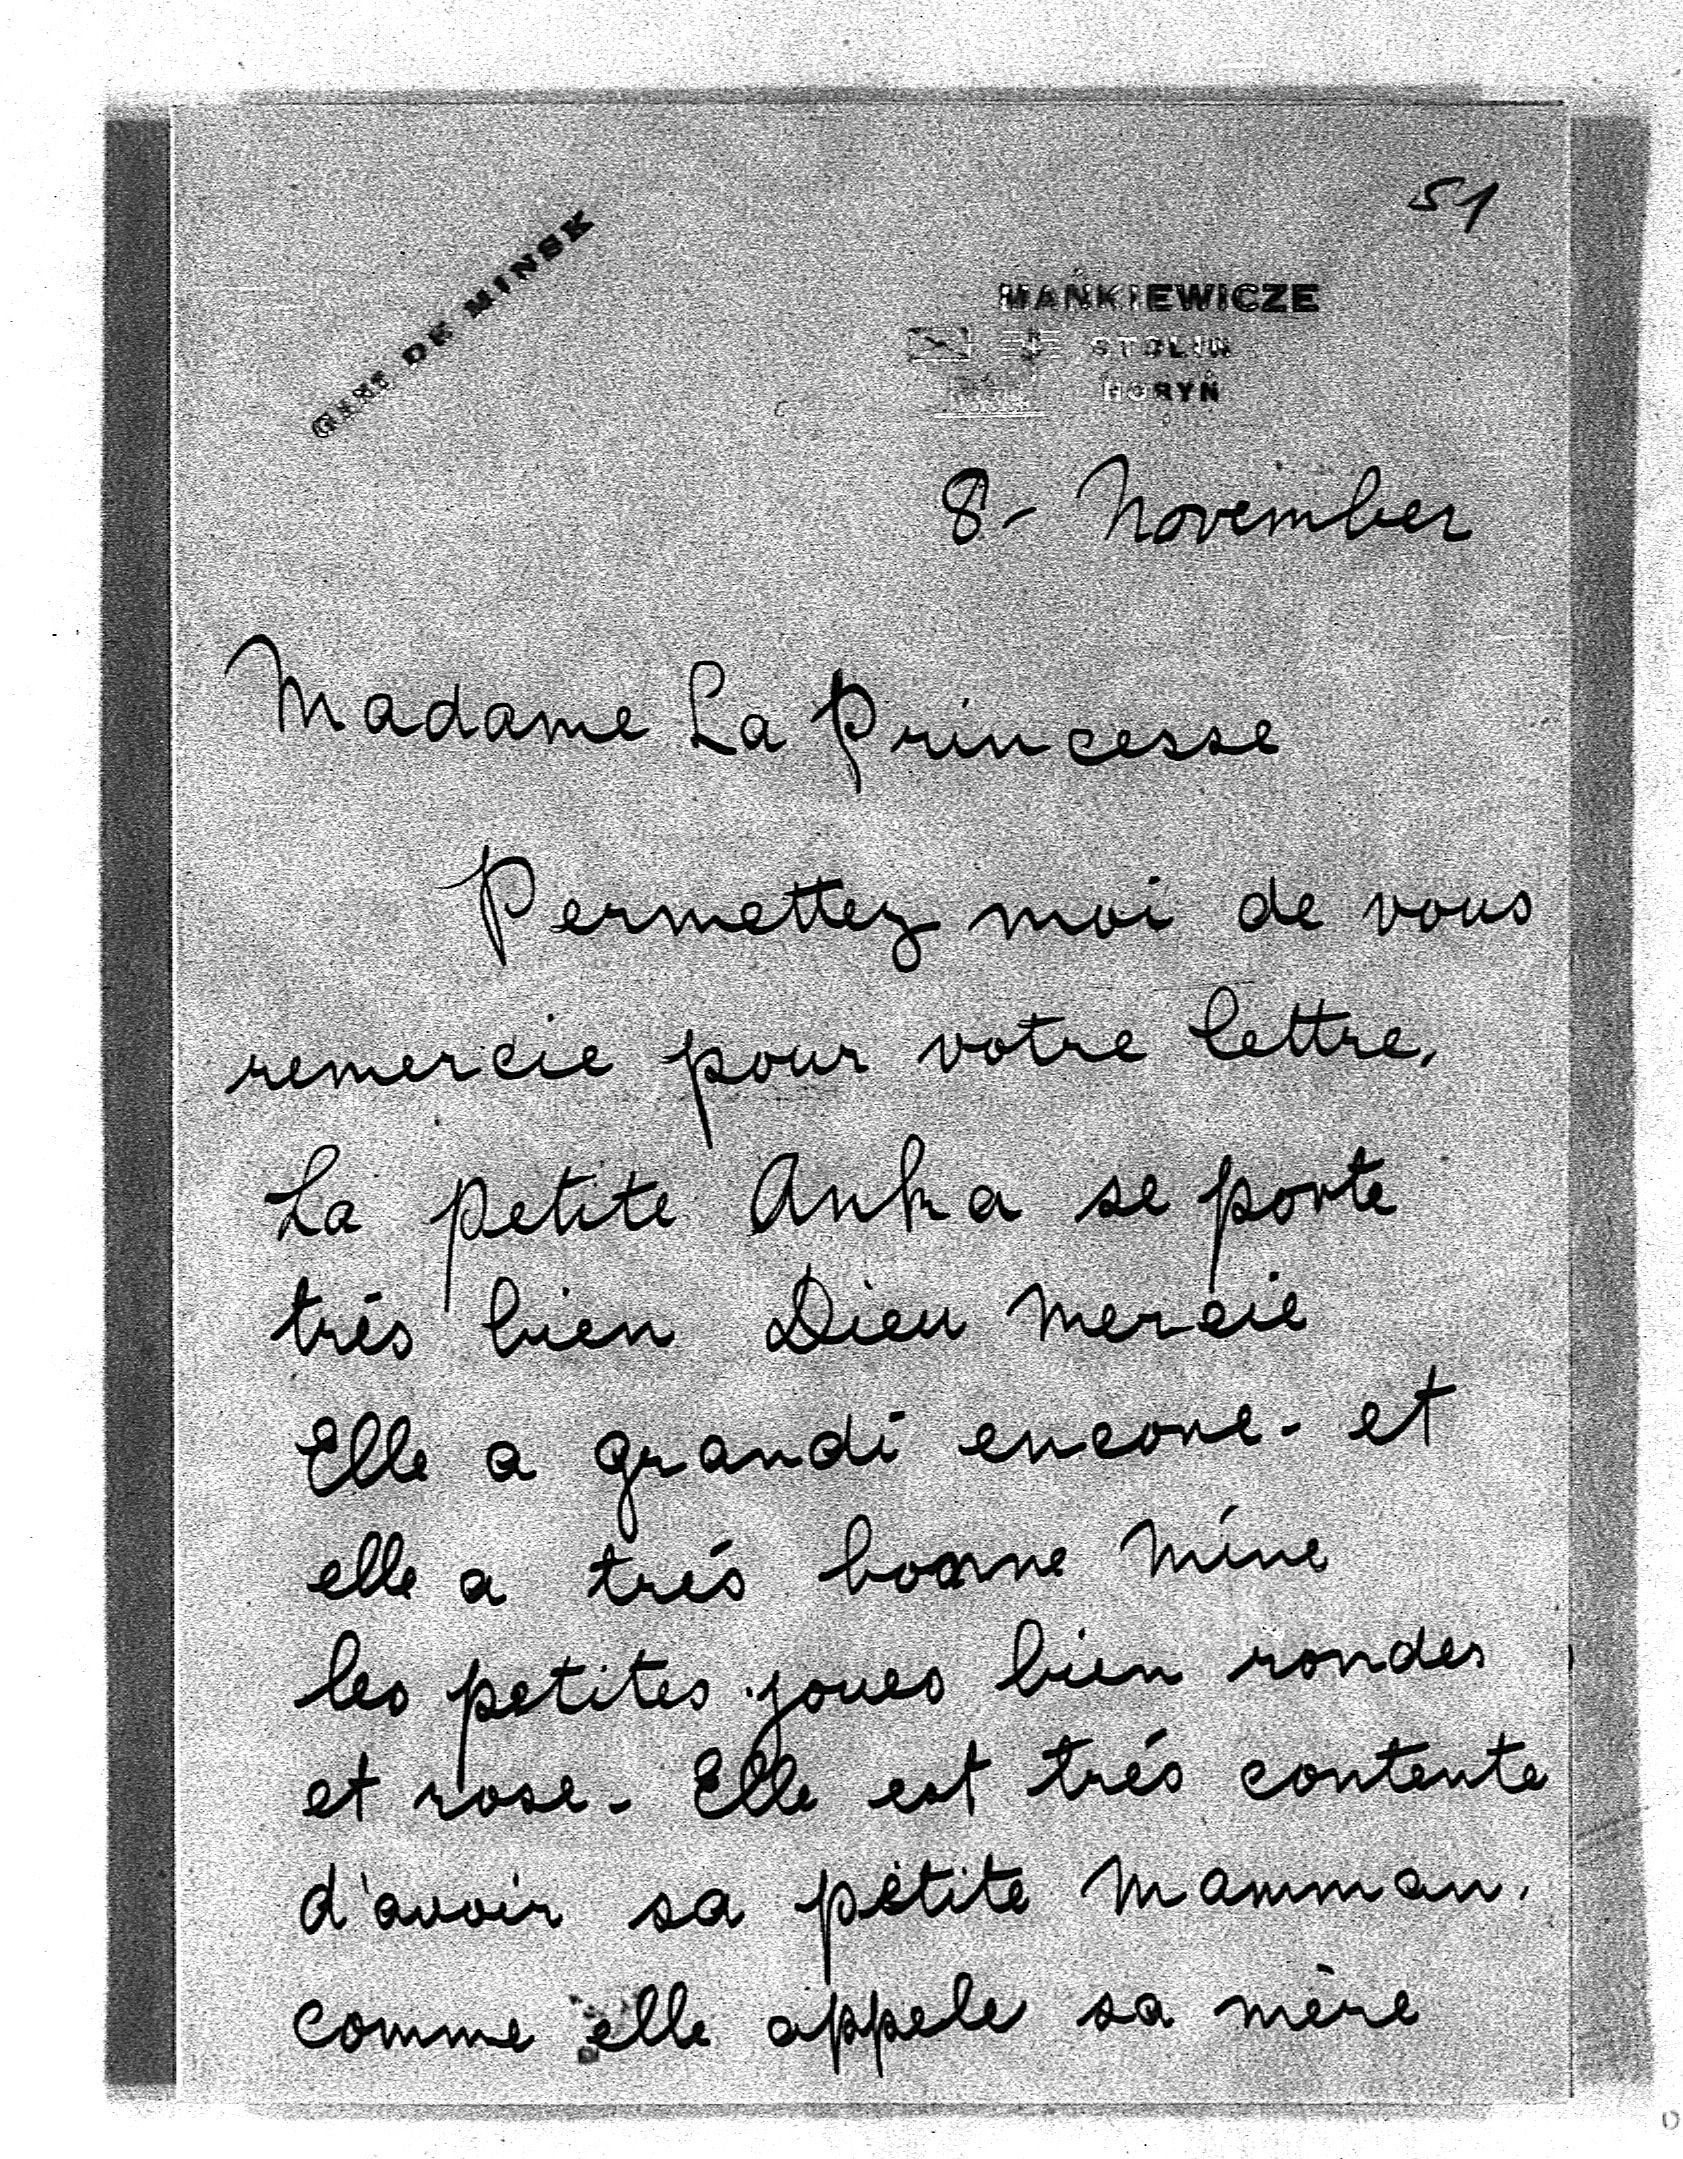 51
GENT DE MINSK
MAŃKIEWICZE
STOLIN
HORYŃ
8 - November
Madame La Princesse
Permettez moi de vous
remercie pour votre lettre.
La petite Anka se porte
trés bien Dieu mercie
Elle a grandi encore - et
elle a trés bonne mine
les petites joues bien rondes
et rose - Elle est trés contente
d'avoir sa petite Mamman.
comme elle appele sa mère